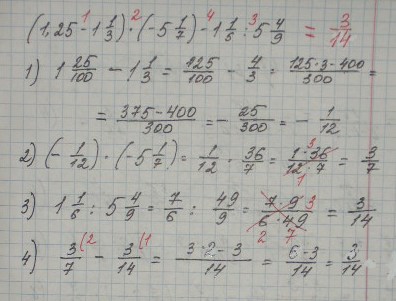 (1,25 - 1 1/3) · (-5 1/7) - 1 1/6 : 5 4/9 = 3/14
1) 1 25/100 - 1 1/3 = 125/100 - 4/3 = (125·3-400)/300 =
= (375-400)/300 = - 25/300 = - 1/12
2) (- 1/12) · (-5 1/7) = 1/12 · 36/7 = (1·36)/(12·7) = 3/7
3) 1 1/6 : 5 4/9 = 7/6 : 49/9 = (7·9)/(6·49) = 3/14
4) 3/7 - 3/14 = (3·2-3)/14 = (6-3)/14 = 3/14